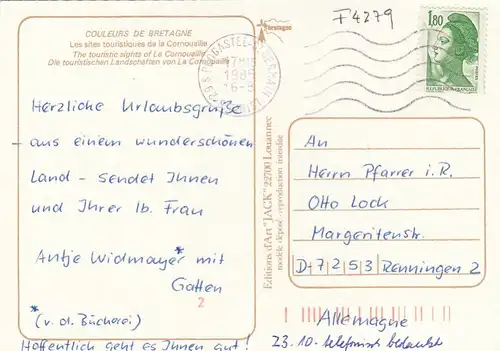 COULEURS DE BRETAGNE
Les sites touristiques de la Cornouaille
The touristic sights of La Cornouaille
Die touristischen Landschaften von La Cornouaille
bretagne
F4279
1,80
REPUBLIQUE FRANÇAISE
POSTES
29S PLOUGASTEL-
17H
1985
Herzliche Urlaubsgrüße
aus einem wunderschönen
Land - sendet Ihnen
und Ihrer lb. Frau
Antje Widmayer* mit
Gatten
2
* (v. d. Bücherei)
Hoffentlich geht es Ihnen gut!
Editions d'Art "JACK" 22700 Louannec
modèle déposé - reproduction interdite
An
Herrn Pfarrer i.R.
Otto Lock
Margeritenstr.
D-7253 Renningen 2
Allemagne
23.10. telefonisch bedankt